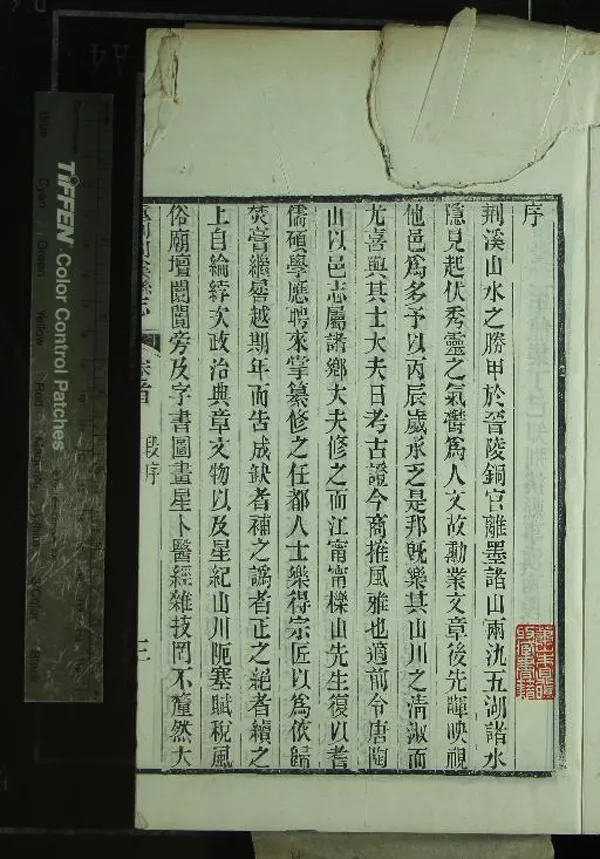 序
荆溪山水之勝甲於晉陵銅官離墨諸山兩氿五湖諸水
隱見起伏秀靈之氣鬱爲人文故勳業文章後先暉映視
他邑爲多予以丙辰歲承乏是邦旣樂其山川之清淑而
尤喜與其士大夫日考古證今商搉風雅也適前令唐陶
山以邑志屬諸鄉大夫修之而江甯甯櫟山先生復以耆
儒碩學應聘來掌纂修之任都人士樂得宗匠以爲依歸
焚膏繼晷越期年而告成缺者補之譌者正之絕者續之
上自綸綍次政治典章文物以及星紀山川阨塞賦稅風
俗廟壇闤闠旁及字書圖畫星卜醫經雜技罔不釐然大
志 卷首 段序 三
TIFFEN Color Control Patches
Blue Cyan Green Yellow Red Magenta White 3/Color Black